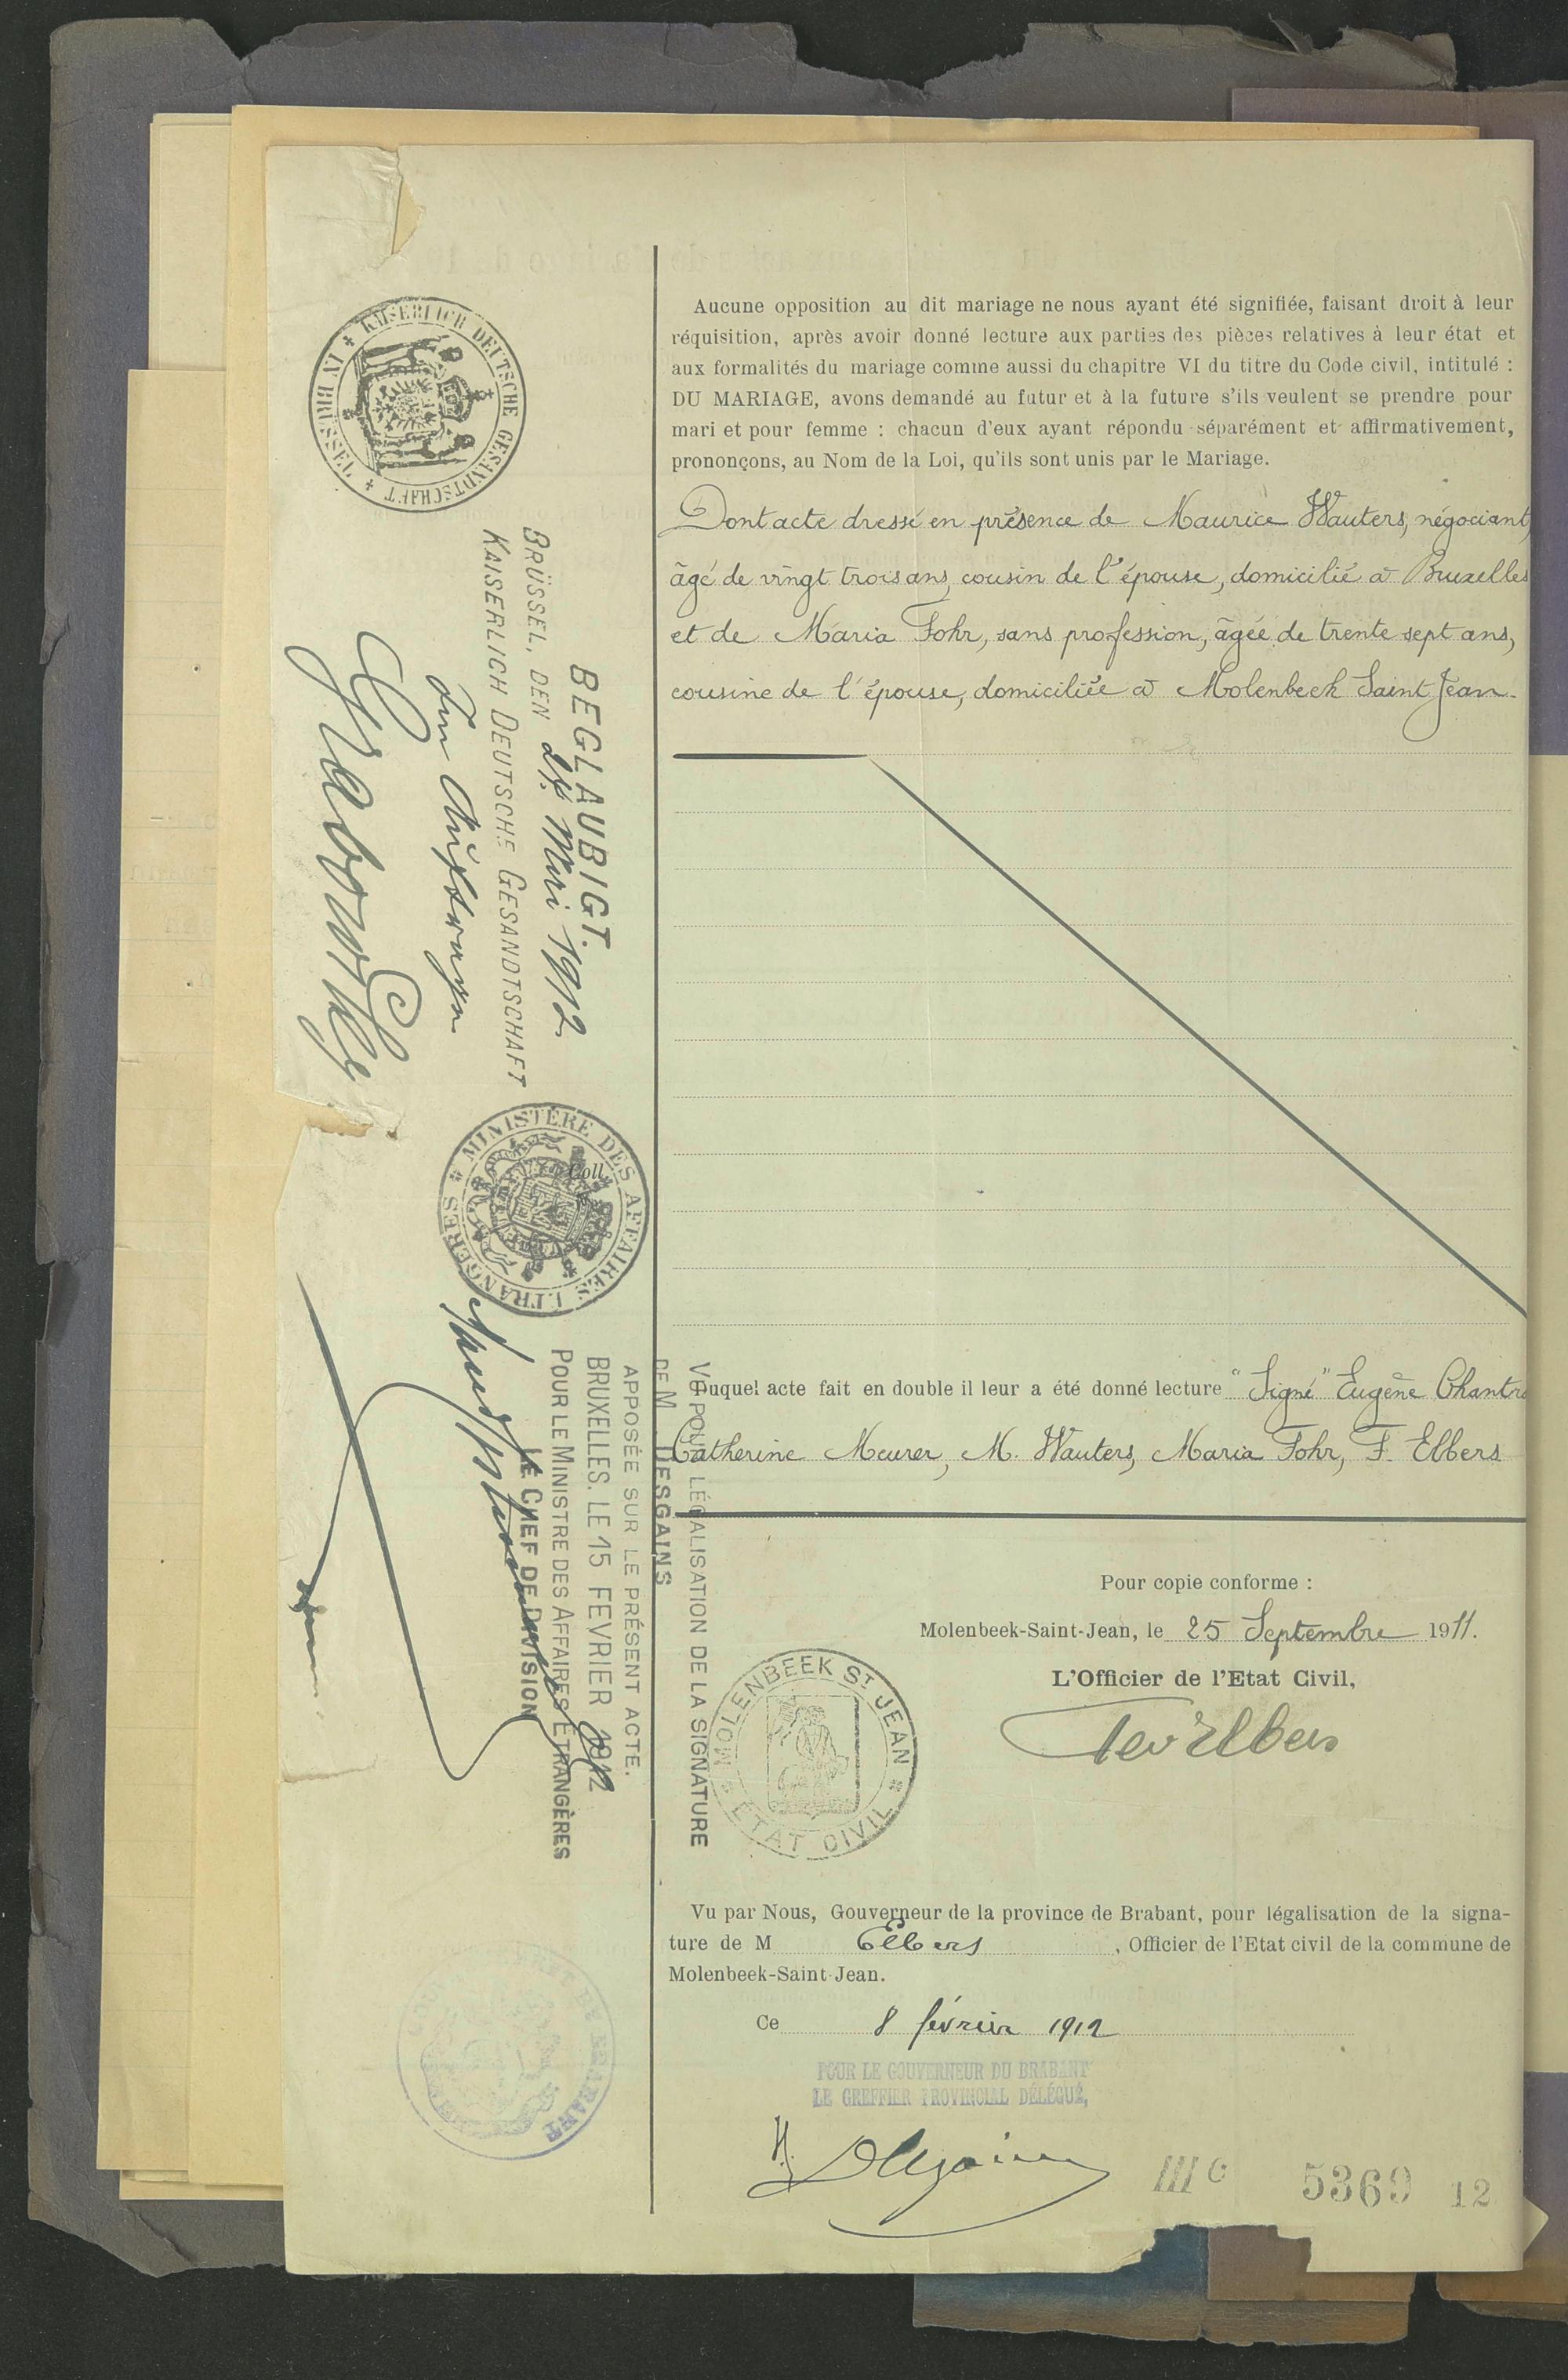 Aucune opposition au dit mariage ne nous ayant été signifiée, faisant droit à leur
réquisition, après avoir donné lecture aux parties des pièces relatives à leur état et
aux formalités du mariage comme aussi du chapitre VI du titre du Code civil, intitulé :
DU MARIAGE, avons demandé au futur et à la future s'ils veulent se prendre pour
mari et pour femme : chacun d'eux ayant répondu séparément et affirmativement,
prononçons, au Nom de la Loi, qu'ils sont unis par le Mariage.
Dont acte dressé en présence de Maurice Wauters, négociant,
âgé de vingt trois ans, cousin de l'épouse, domicilié à Bruxelles
et de Maria Fohr, sans profession, âgée de trente sept ans,
cousine de l'épouse, domiciliée à Molenbeek Saint Jean.
Duquel acte fait en double il leur a été donné lecture "Signé" Eugène
Catherine Meurer, M. Wauters, Maria Fohr, F. Elbers
Pour copie conforme :
Molenbeek-Saint-Jean, le 25 Septembre 1911.
L'Officier de l'Etat Civil,
Elbers
MOLENBEEK ST JEAN * ETAT CIVIL *
Vu par Nous, Gouverneur de la province de Brabant, pour légalisation de la signa-
ture de M Elbers , Officier de l'Etat civil de la commune de
Molenbeek-Saint-Jean.
Ce 8 février 1912
POUR LE GOUVERNEUR DU BRABANT
LE GREFFIER PROVINCIAL DÉLÉGUÉ,
III c 5369 12
KAISERLICH DEUTSCHE GESANDTSCHAFT + IN BRÜSSEL +
BEGLAUBIGT.
BRÜSSEL, DEN 1912
KAISERLICH DEUTSCHE GESANDTSCHAFT
Im Auftrage
MINISTÈRE DES AFFAIRES ETRANGERES *
Coll.
VU POUR LÉGALISATION DE LA SIGNATURE
DE M DESGAINS
APPOSÉE SUR LE PRÉSENT ACTE.
BRUXELLES. LE 15 FEVRIER 1912
POUR LE MINISTRE DES AFFAIRES ETRANGÈRES
LE CHEF DE DIVISION